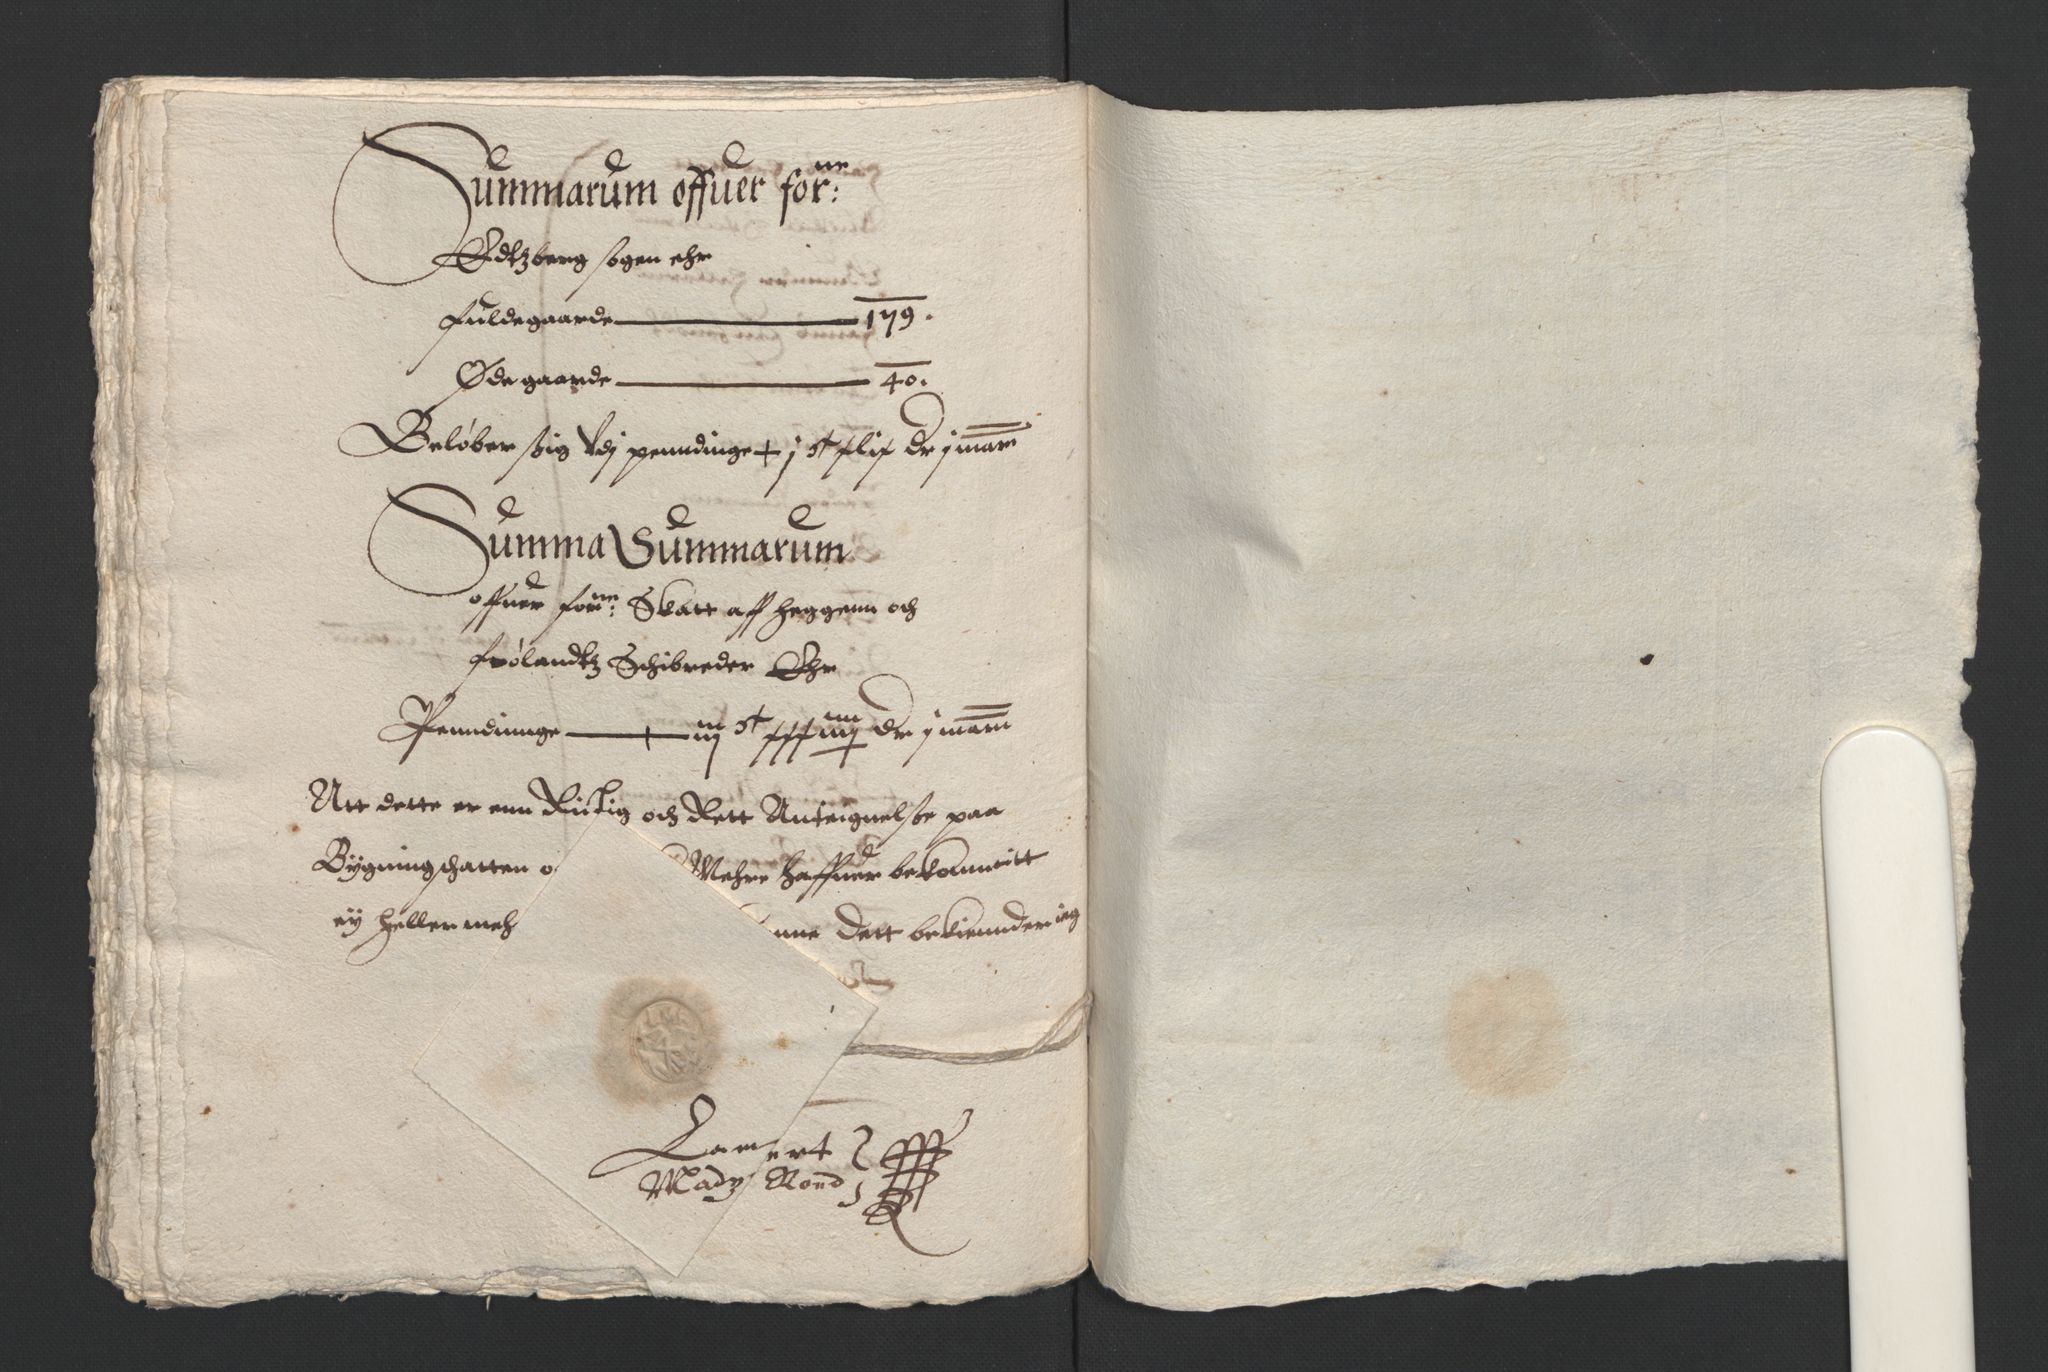 Summarum offuer for:ne
Edtzberg sogen ehr
fuldegaarde 179.
Øde gaarde 40.
Beløber sig Udj penndinge j ct xlix dr j marc
Summa Summarum
offuer forne: Skatt aff Heggenn och
Frølandtz Schibreder Ehr
Penndinnge iij ct xxx iiij dr j marc
Att dette er enn Richtig och Rett Anteignelse paa
Bygningschatten o Mehre haffuer bekommitt
eÿ heller meh nne Dett bekiennder ieg
Lamert
Madz Roed